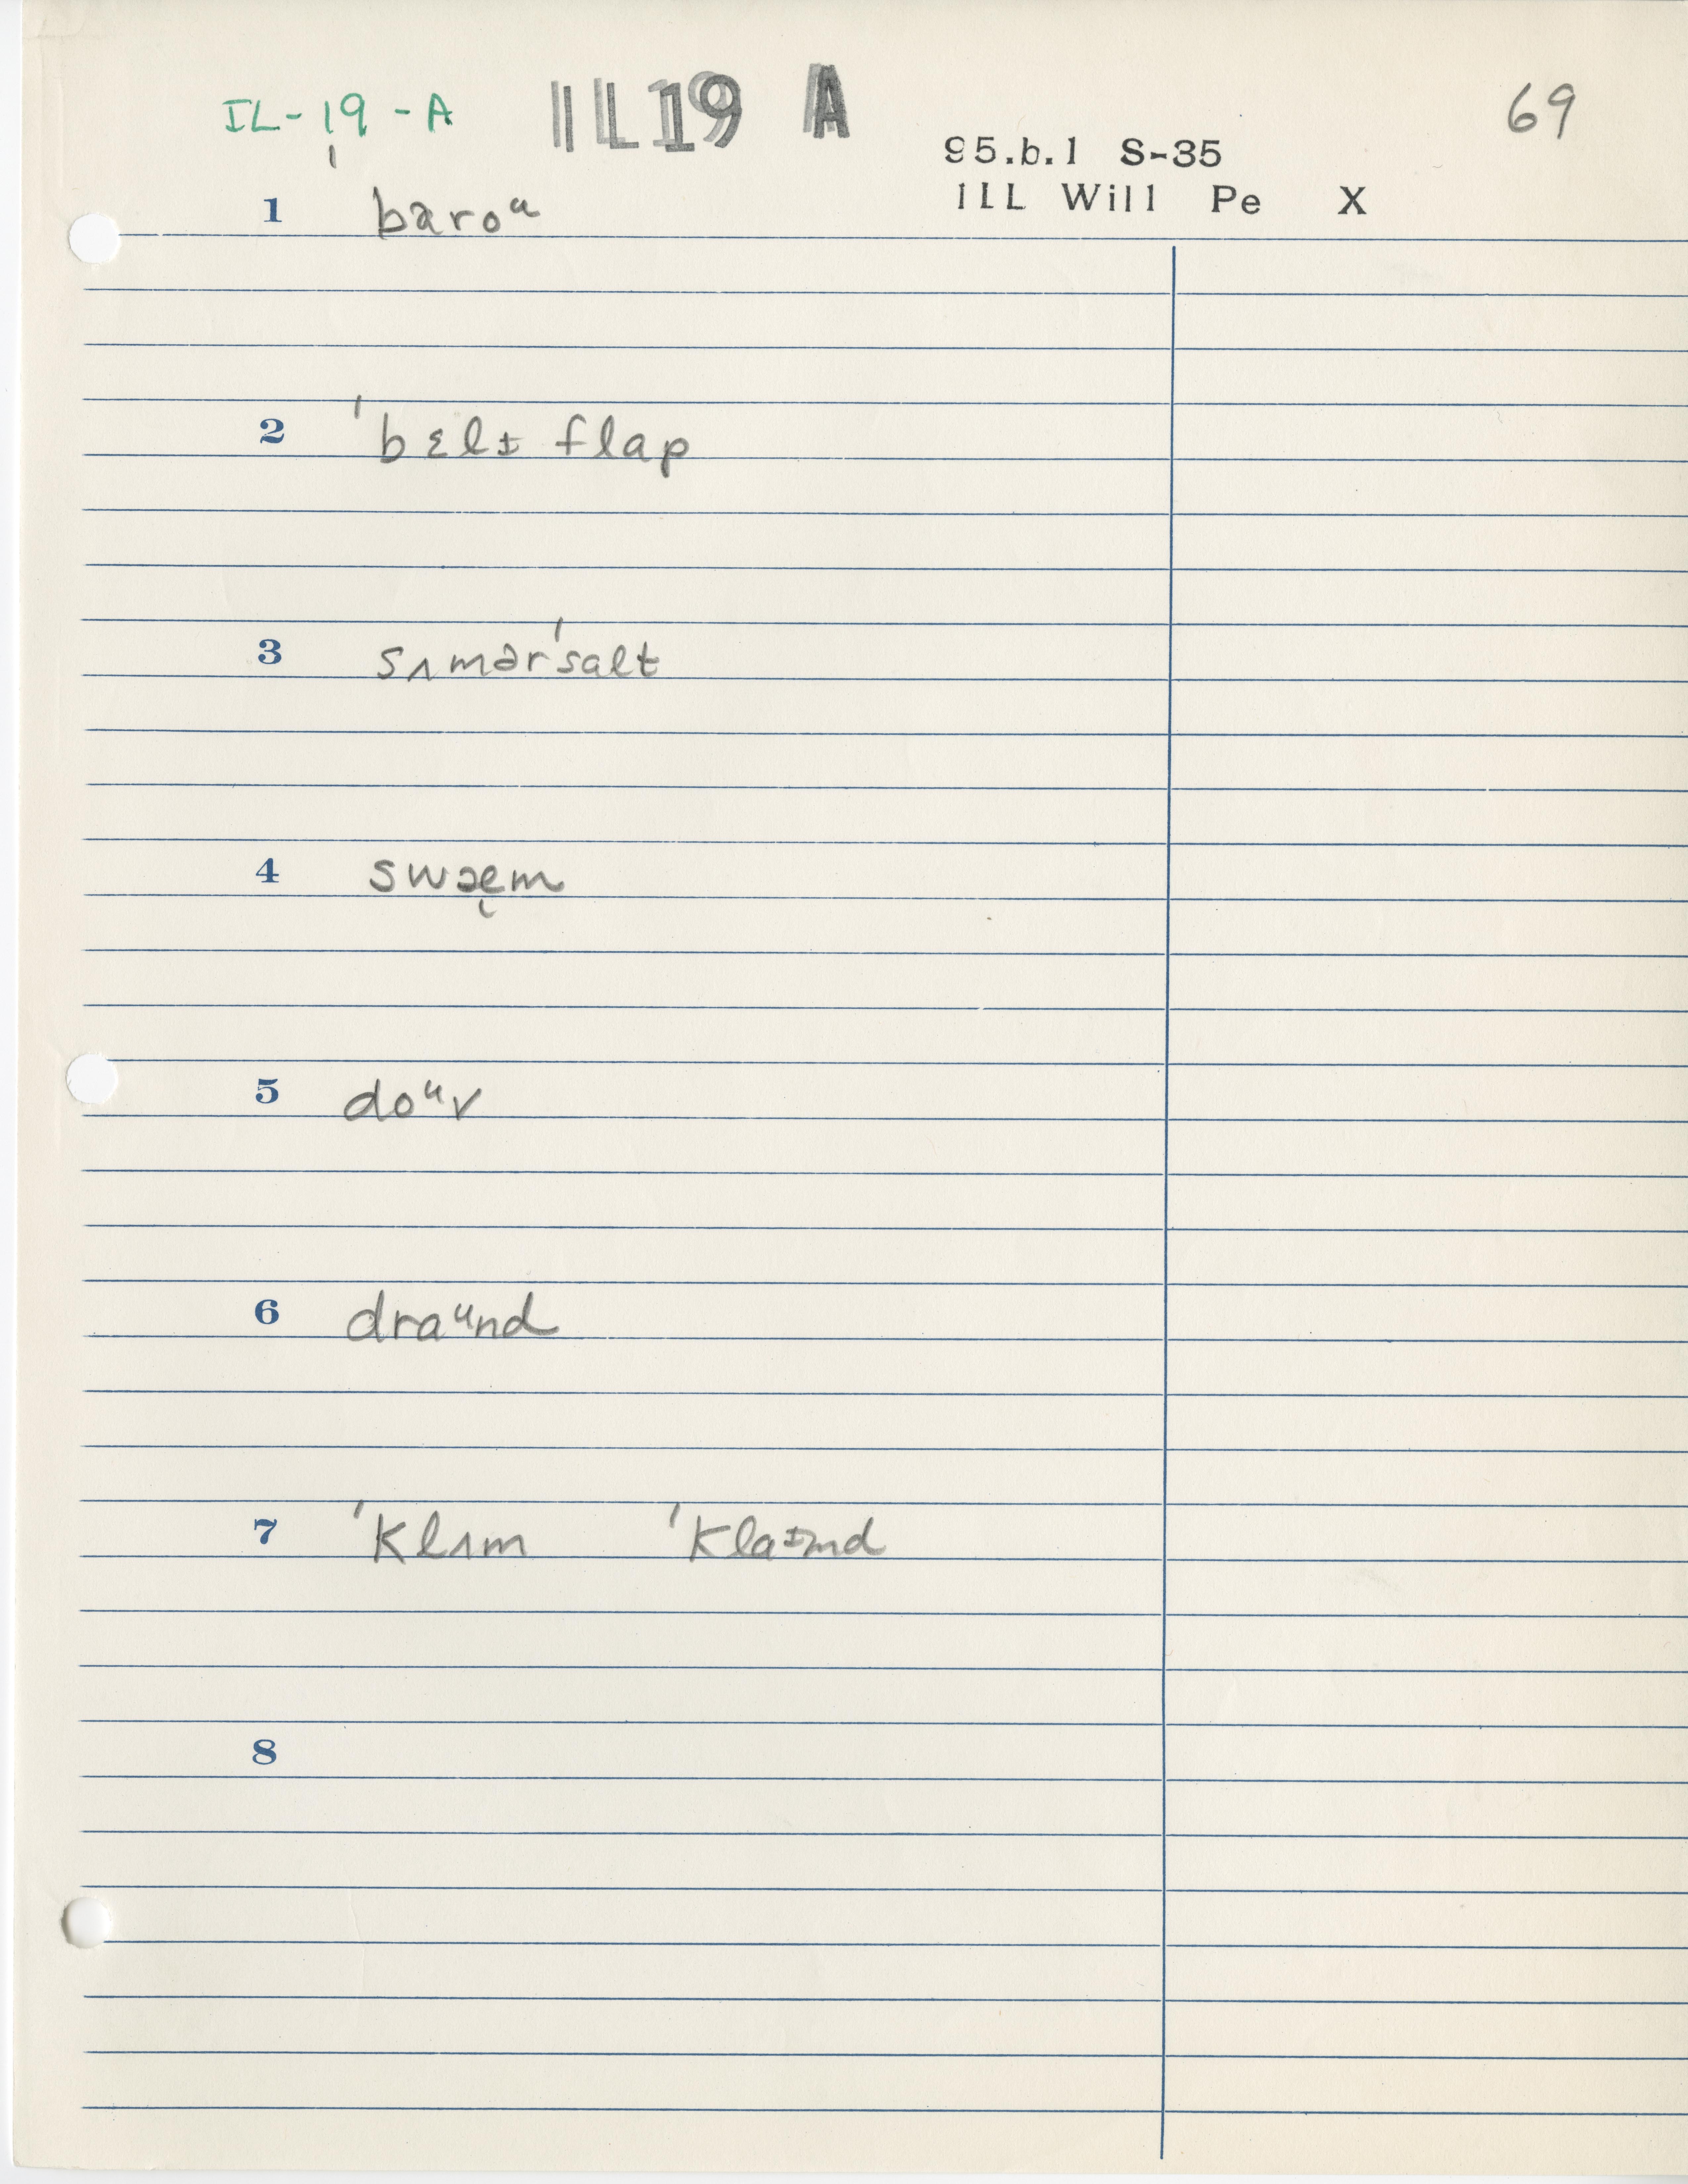 IL-19-A IL19 A 69
95.b.1 S-35
ILL Will Pe X
1 baroᵘ
2 ˈbɛlɪ flap
3 sʌmərˈsalt
4 swəem
5 doᵘv
6 draᵘnd
7 ˈklɪm ˈklaɪmd
8